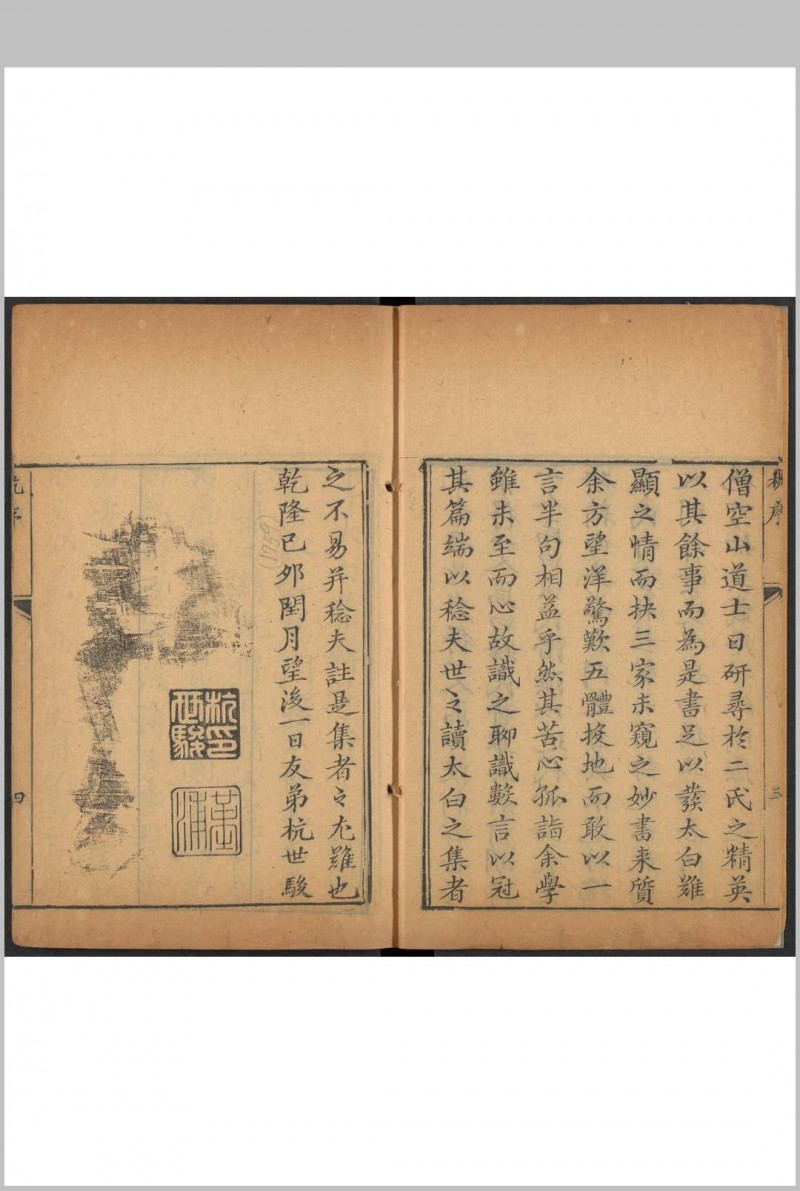 僧空山道士日研尋於二氏之精英
以其餘事而為是書足以發太白難
顯之情而抉三家未窺之妙書来質
余方望洋驚歎五體投地而敢以一
言半句相益乎然其苦心孤詣余學
雖未至而心故識之聊識數言以冠
其篇端以稔夫世之讀太白之集者
三
之不易并稔夫註是集者之尤難也
乾隆己夘閏月望後一日友弟杭世駿
(1759)
杭世駿印
堇浦
四